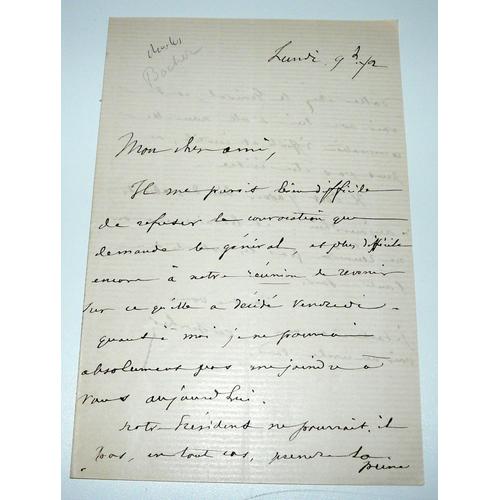 Charles
Bocher
Lundi 9h ½
Mon cher ami,
Il me parait bien difficile
de refuser la convocation que
demande le général, et plus difficile
encore à notre réunion de revenir
sur ce qu'elle a décidé vendredi -
quant à moi je ne pourrai
absolument pas me joindre à
vous aujourd'hui.
notre Président ne pourrait-il
pas, en tout cas, prendre la
peine